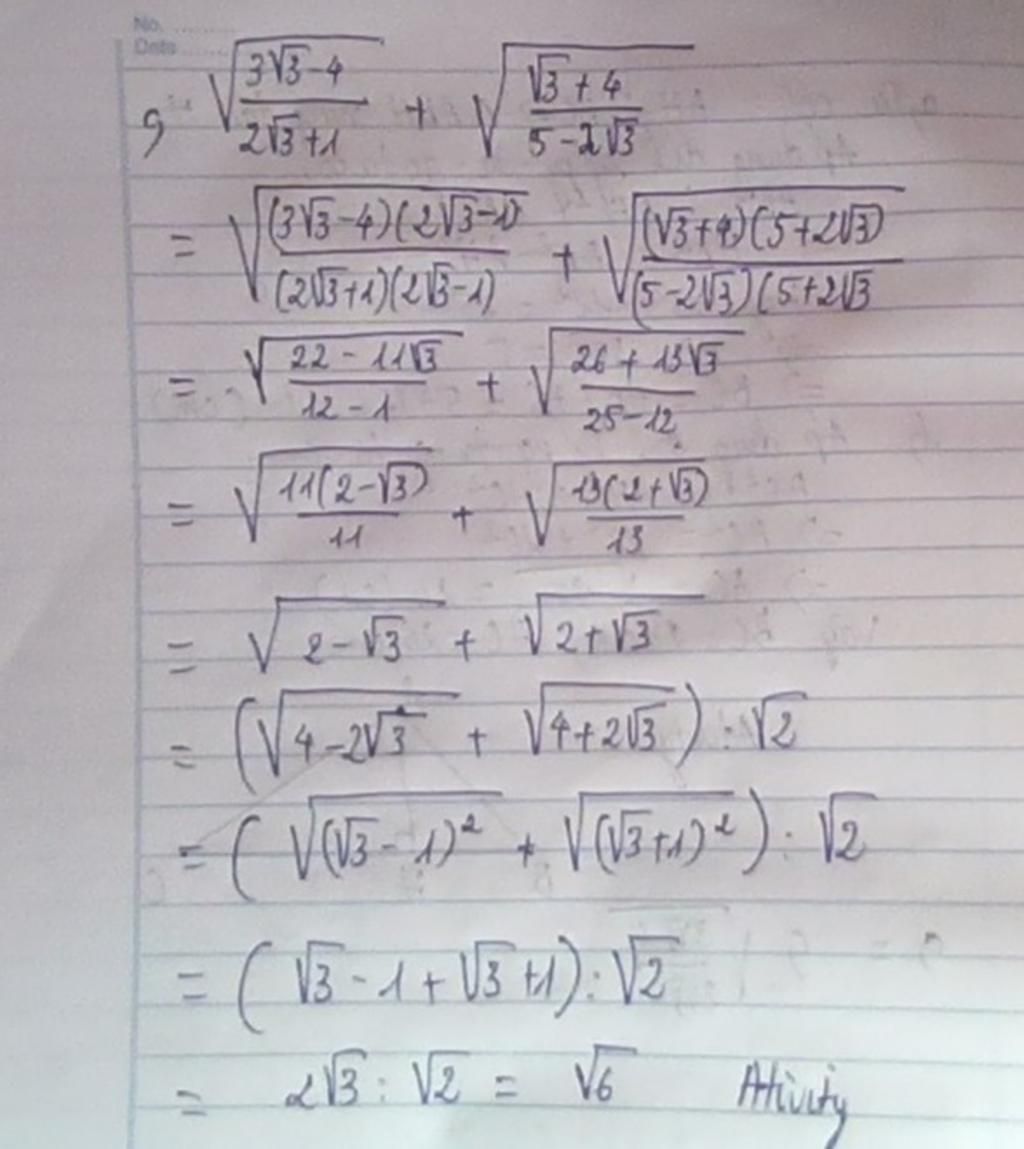 No. ........
Date ........
g, √((3√3-4)/(2√3+1)) + √((√3+4)/(5-2√3))
= √((3√3-4)(2√3-1)/((2√3+1)(2√3-1))) + √((√3+4)(5+2√3)/((5-2√3)(5+2√3))
= √((22-11√3)/(12-1)) + √((26+13√3)/(25-12))
= √(11(2-√3)/11) + √(13(2+√3)/13)
= √(2-√3) + √(2+√3)
= (√(4-2√3) + √(4+2√3)) : √2
= (√((√3-1)²) + √((√3+1)²)) : √2
= (√3-1+√3+1) : √2
= 2√3 : √2 = √6 Ativity